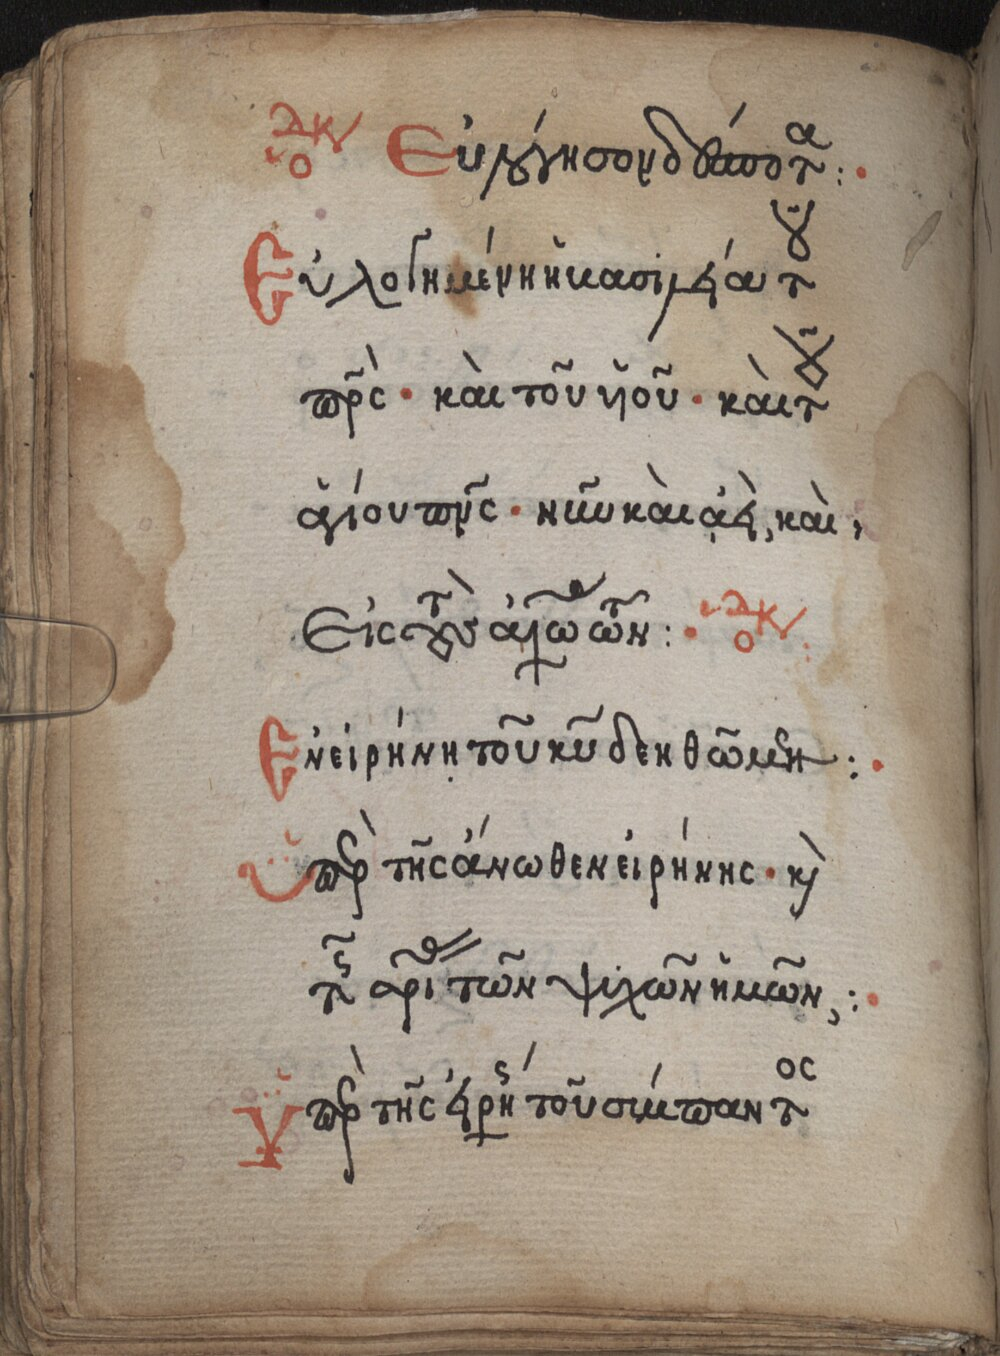 διακο Εὐλόγησον δέσποτα :·
Εὐλογημένη ἡ βασιλεία τοῦ
πρς · καὶ τοῦ ὑιοῦ · καὶ τοῦ
ἁγίου πνς · νῦν καὶ ἀεὶ, καὶ,
Εἰς τοὺς αἰῶ τῶν : · διακο
Ἐν εἰρήνη τοῦ κυ δεηθῶμεν :·
Ὑπὲρ τῆς ἄνωθεν εἰρήνης · κὶ
τῆς σρι τῶν ψυχῶν ἡμῶν, :·
Ὑπὲρ τῆς εἰρή τοῦ σύμπαντος